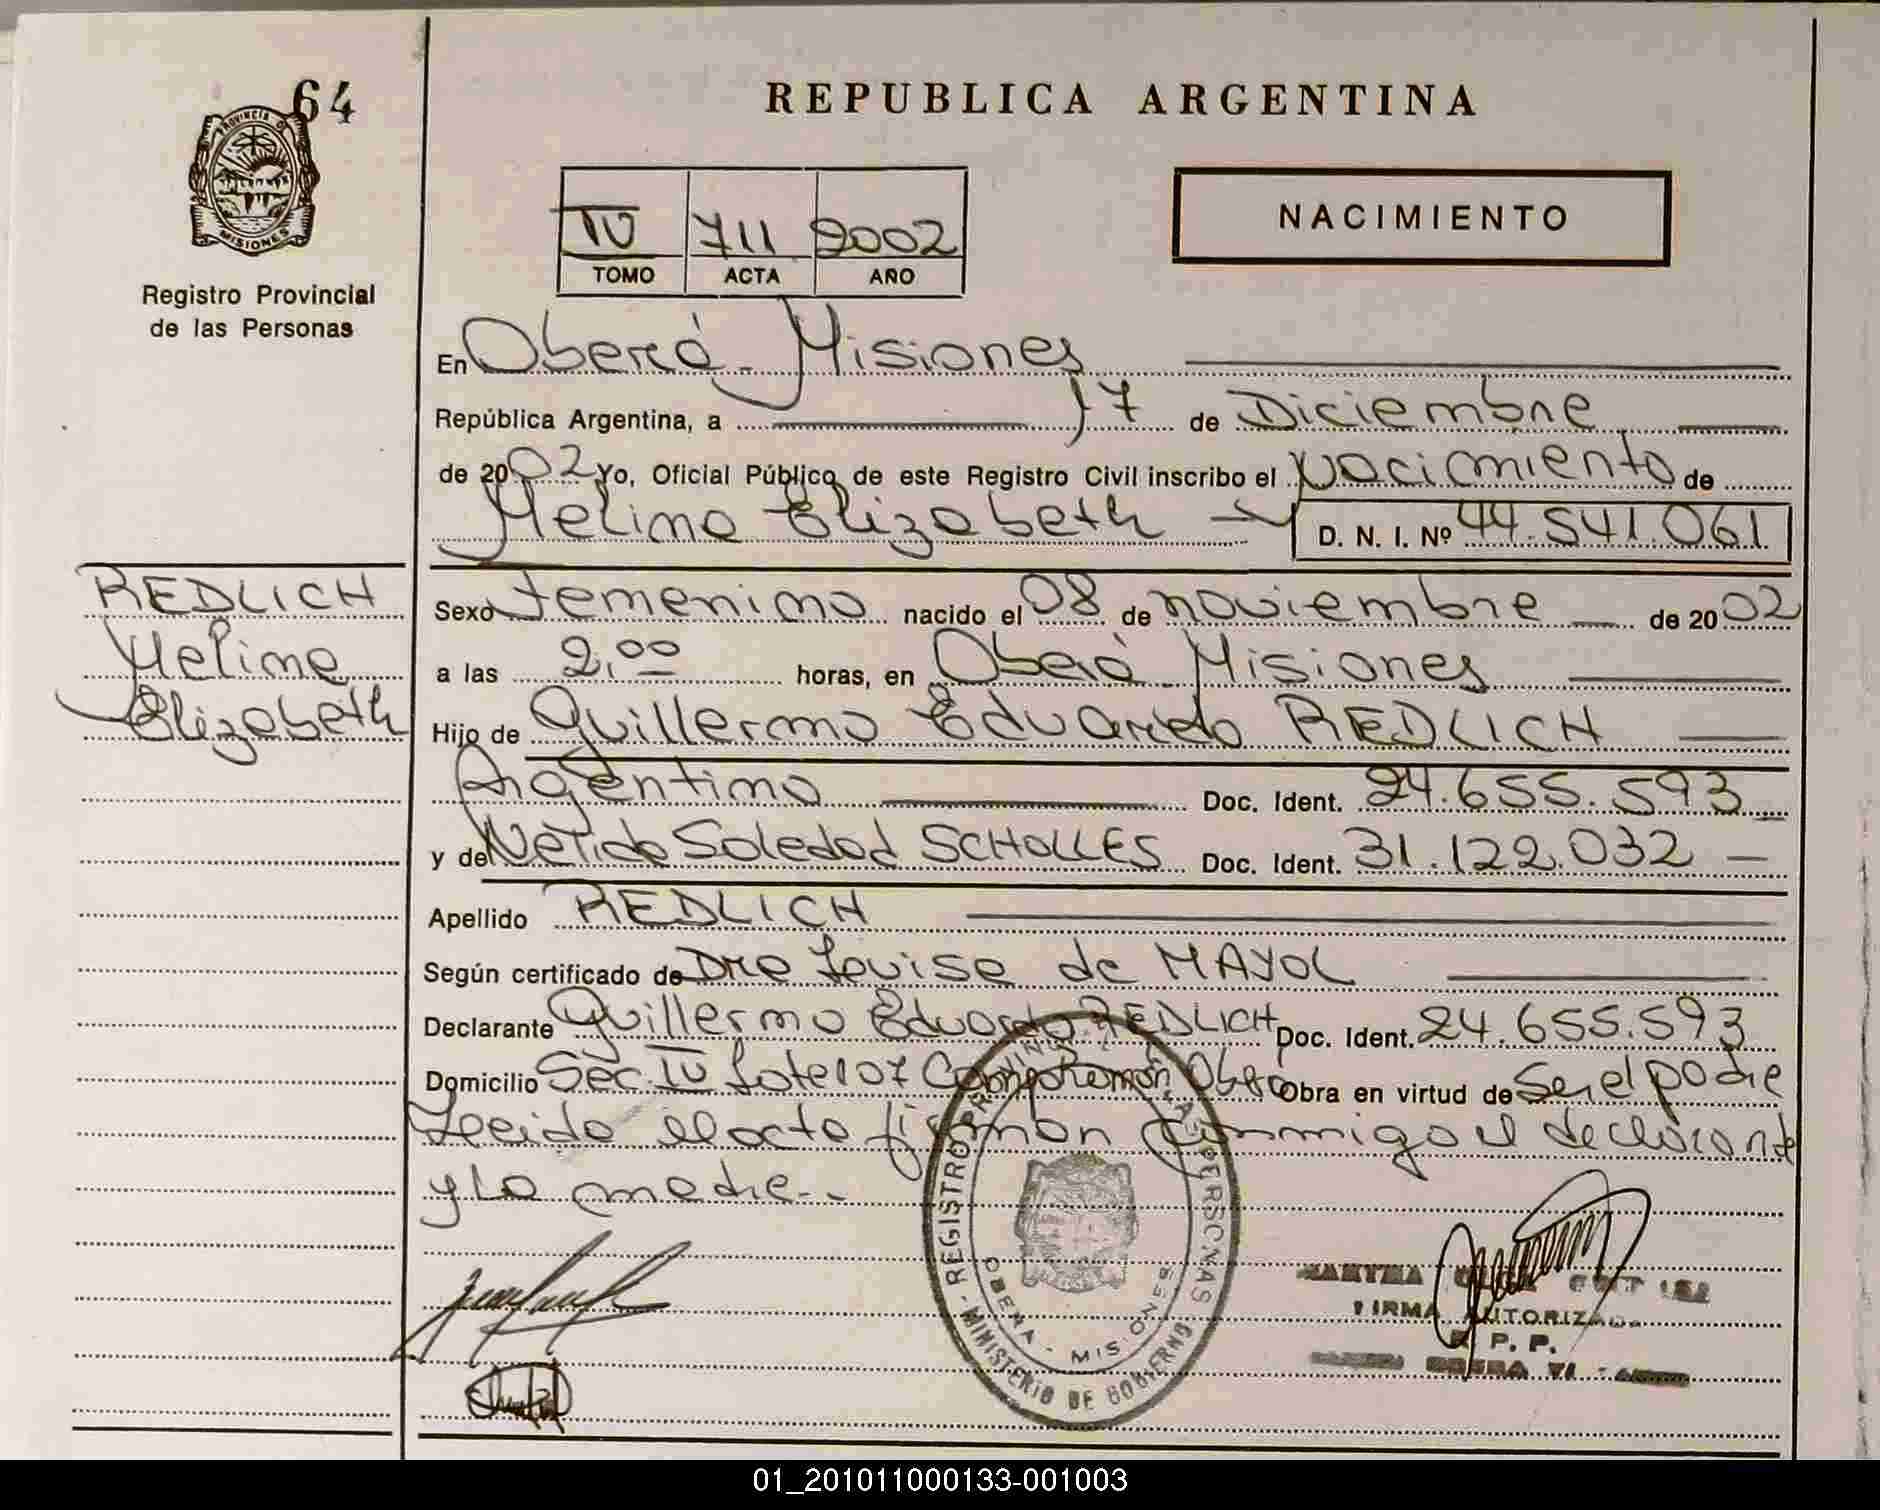 64
PROVINCIA DE
MISIONES
Registro Provincial
de las Personas
REPUBLICA ARGENTINA
IV 711 2002
TOMO ACTA AÑO
NACIMIENTO
En Oberá - Misiones
República Argentina, a 17 de Diciembre
de 2002 Yo, Oficial Público de este Registro Civil inscribo el Nacimiento de
Melina Elizabeth D. N. I. Nº 44.541.061
REDLICH
Melina
Elizabeth
Sexo femenino nacido el 08 de noviembre de 2002
a las 2,00 horas, en Oberá - Misiones
Hijo de Guillermo Eduardo REDLICH
Argentino Doc. Ident. 24.655.593
y de Nelida Soledad SCHOLLES Doc. Ident. 31.122.032
Apellido REDLICH
Según certificado de Dra Louise de MAYOL
Declarante Guillermo Eduardo REDLICH Doc. Ident. 24.655.593
Domicilio Sec. IV Lote 107 Campo Ramón Oberá Obra en virtud de Ser el padre
Leida el acta firman conmigo el declarante
y la madre..
REGISTRO PROVINCIAL DE LAS PERSONAS
MINISTERIO DE GOBIERNO
OBERA - MISIONES
MARTHA
FIRMA AUTORIZADA
R. P. P.
01_201011000133-001003